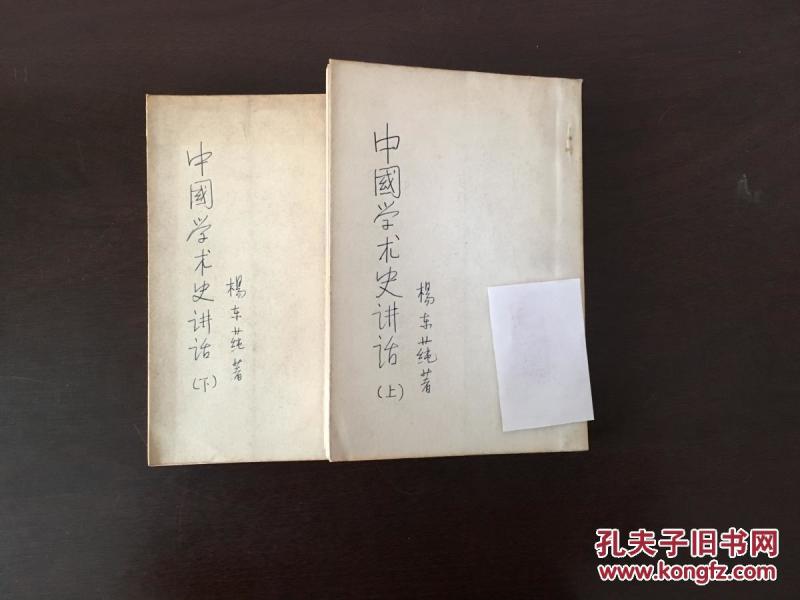 中國学术史讲话
(上)
楊东蒓著
中國学术史讲话
(下)
楊东蒓著
孔夫子旧书网
www.kongfz.com